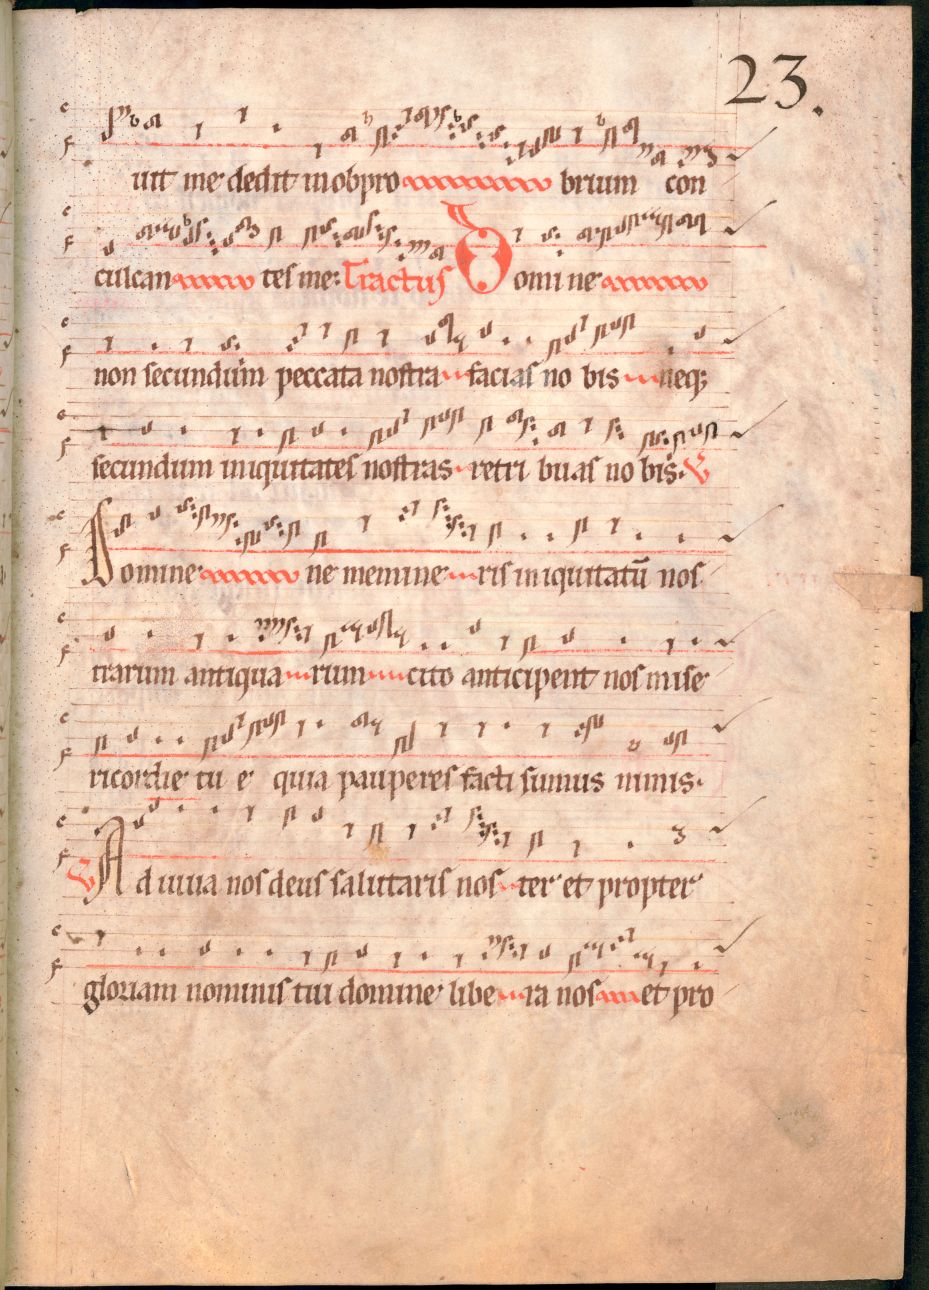 23.
uit me dedit in obpro brium con
culcan tes me: Tractus Domine
non secundum peccata nostra facias no bis neq;
secundum iniquitates nostras retri buas no bis. V
Domine ne memine ris iniquitatū nos
trarum antiqua rum cito anticipent nos mise
ricordie tu e quia pauperes facti sumus nimis.
V Adiuua nos deus salutaris nos ter et propter
gloriam nominis tui domine libe ra nos et pro